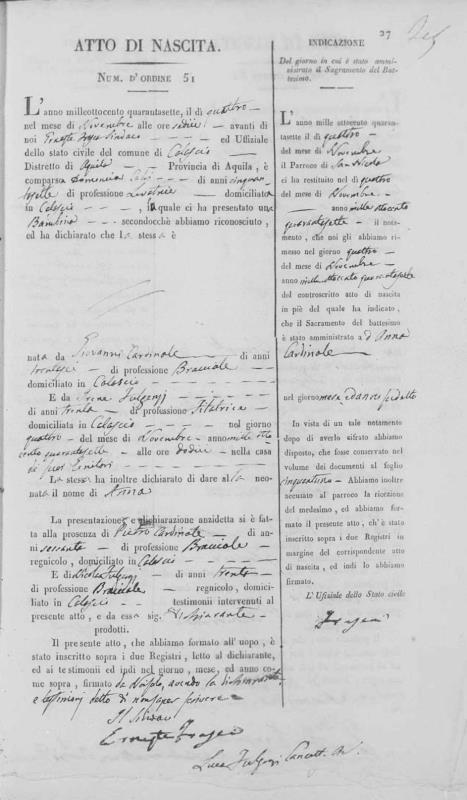 27
ATTO DI NASCITA.
NUM. D'ORDINE 51
L'anno milleottocento quarantasette, il dì quattro
nel mese di Novembre alle ore sedici avanti di
noi Sindaco ed Uffiziale
dello stato civile del comune di Calascio
Distretto di Aquila Provincia di Aquila, è
comparsa Domenica di anni cinquan
tasette di professione Levatrice domiciliata
in Calascio la quale ci ha presentato una
Bambina secondocchè abbiamo riconosciuto,
ed ha dichiarato che La stessa è
nata da Giovanni Cardinale di anni
trentasei di professione Bracciale
domiciliato in Calascio
E da Irena Fulgenzj
di anni trenta di professione Filatrice
domiciliata in Calascio nel giorno
quattro del mese di Novembre anno mille otto
cento quarantasette alle ore dodici nella casa
de' suoi Genitori
La stessa ha inoltre dichiarato di dare alla neo-
nata il nome di Anna
La presentazione e dichiarazione anzidetta si è fat-
ta alla presenza di Pietro Cardinale di an-
ni sessanta di professione Bracciale
regnicolo, domiciliato in Calascio
E di Nicola Fulgenzj di anni trenta
di professione Bracciale regnicolo, domici-
liato in Calascio testimonii intervenuti al
presente atto, e da essa sig. dichiarante
prodotti.
Il presente atto, che abbiamo formato all'uopo, è
stato inscritto sopra i due Registri, letto al dichiarante,
ed ai testimonii ed indi nel giorno, mese, ed anno co-
me sopra, firmato da Noi solo, avendo la dichiarante
e testimonj detto di non saper scrivere
Il Sindaco
Luca Fulgenzj Cancell.
INDICAZIONE
Del giorno in cui è stato ammi-
nistrato il Sagramento del Bat-
tesimo.
L'anno mille ottocento quaran-
tasette il dì quattro
del mese di Novembre
il Parroco di San Nicola
ci ha restituito nel dì quattro
del mese di Novembre
anno mille ottocento
quarantasette il nota-
mento, che noi gli abbiamo ri-
messo nel giorno quattro
del mese di Novembre
anno mille ottocento quarantasette
del controscritto atto di nascita
in piè del quale ha indicato,
che il Sacramento del battesimo
è stato amministrato a d Anna
Cardinale
nel giorno mese ed anno suddetto
In vista di un tale notamento
dopo di averlo cifrato abbiamo
disposto, che fosse conservato nel
volume dei documenti al foglio
cinquantuno Abbiamo inoltre
accusato al parroco la riorzione
del medesimo, ed abbiamo for-
mato il presente atto, ch'è stato
inscritto sopra i due Registri in
margine del corrispondente atto
di nascita, ed indi lo abbiamo
firmato.
L'Uffiziale dello Stato civile